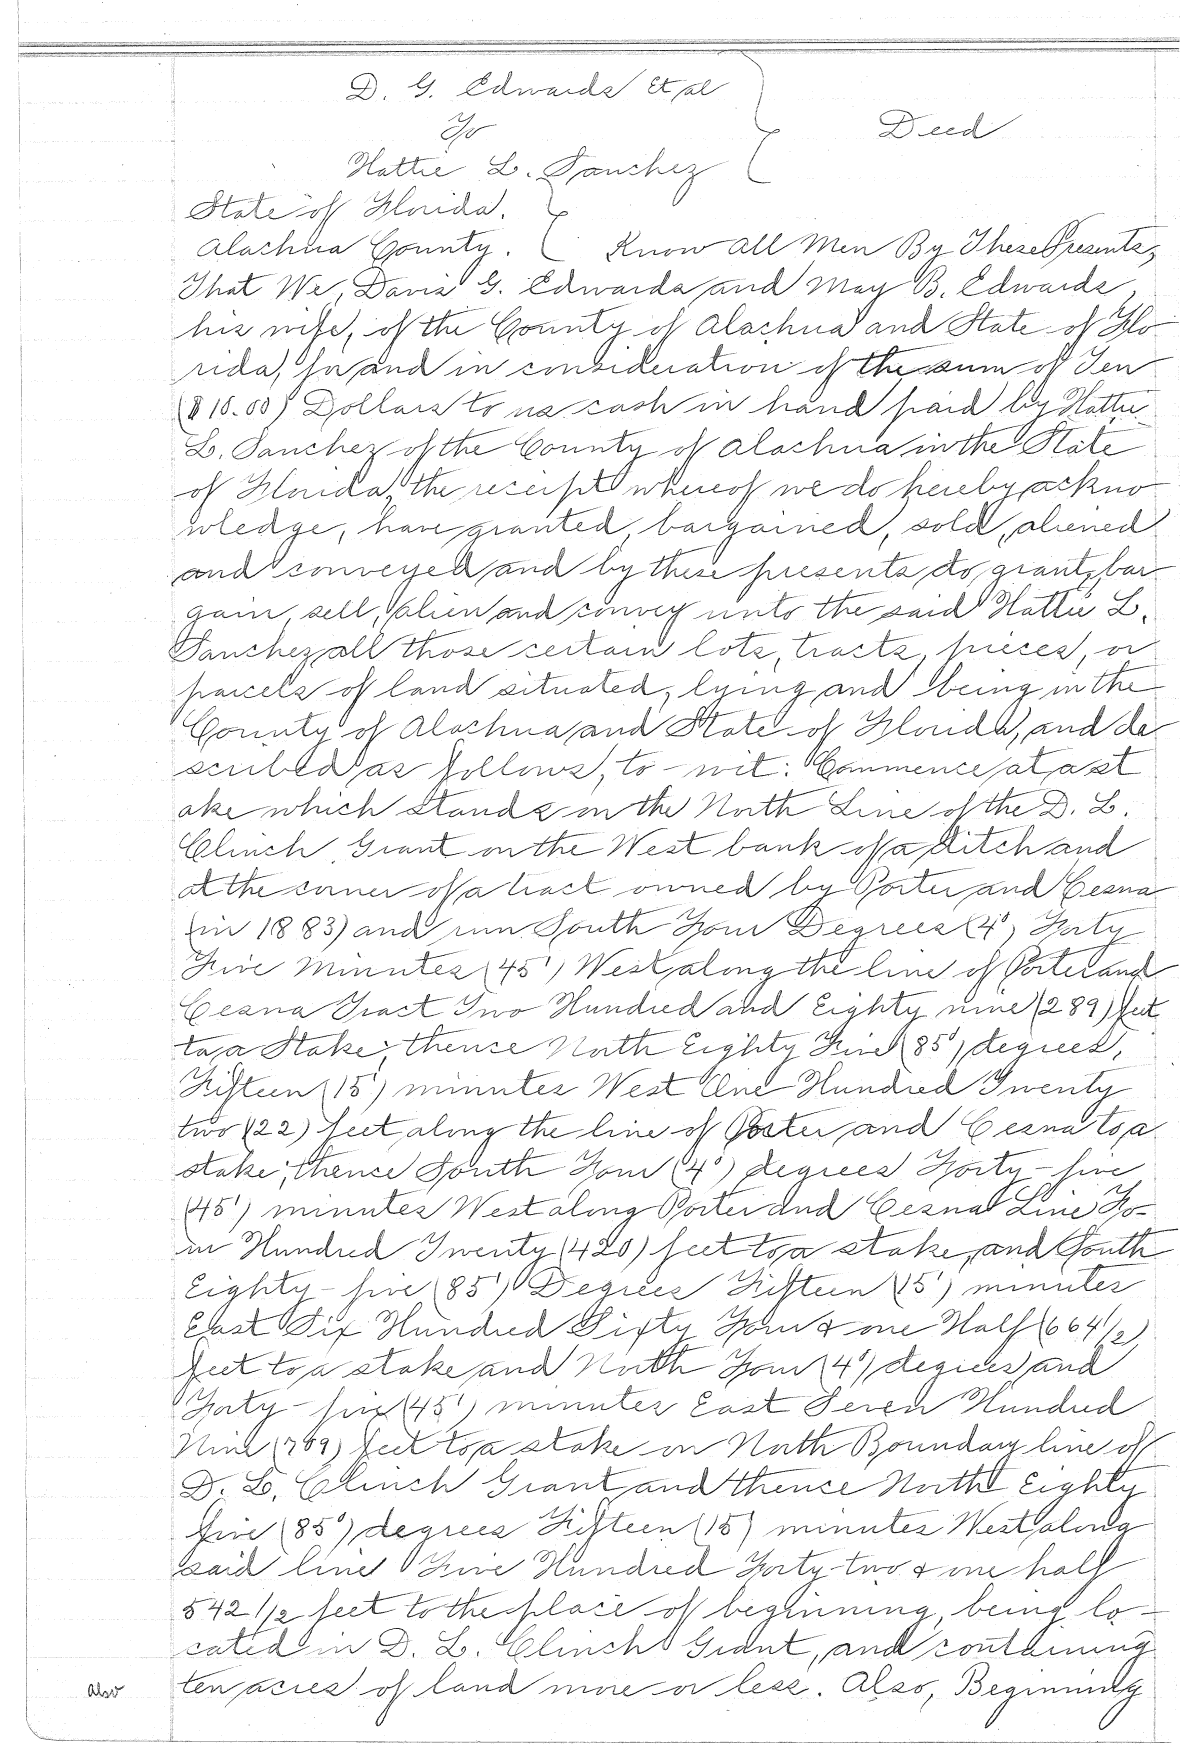 D. G. Edwards Et al
To
Deed
Hattie L. Sanchez
State of Florida.
Alachua County. Know All Men By These Presents,
That We, Davis G. Edwards and May B. Edwards,
his wife, of the County of Alachua and State of Flo
rida, for and in consideration of the sum of Ten
($10.00) Dollars to us cash in hand paid by Hattie
L. Sanchez of the County of Alachua in the State
of Florida, the receipt whereof we do hereby ackno
wledge, have granted, bargained, sold, aliened
and conveyed and by these presents do, grant, bar
gain, sell, alien and convey unto the said Hattie L.
Sanchez all those certain lots, tracts, pieces, or
parcels of land situated, lying and being in the
County of Alachua and State of Florida, and de
scribed as follows, to-wit: Commence at a st
ake which stands on the North Line of the D. L.
Clinch Grant on the West bank of a ditch and
at the corner of a tract owned by Porter and Cesna
(in 1883) and run South Four Degrees (4°) Forty
Five Minutes (45') West along the line of Porter and
Cesna Tract Two Hundred and Eighty nine (289) feet
to a Stake; thence North Eighty Five (85°) degrees,
Fifteen (15') minutes West One Hundred Twenty
two (22) feet along the line of Porter and Cesna to a
stake; thence South Four (4°) degrees Forty-five
(45') minutes West along Porter and Cesna Line Fo-
ur Hundred Twenty (420) feet to a stake, and South
Eighty-five (85°) Degrees Fifteen (15') minutes
East Six Hundred Sixty Four & one Half (664 1/2)
feet to a stake and North Four (4°) degrees and
Forty-five (45') minutes East Seven Hundred
Nine (709) feet to a stake on North Boundary line of
D. L. Clinch Grant and thence North Eighty
five (85°) degrees Fifteen (15) minutes West along
said line Five Hundred Forty-two & one half
542 1/2 feet to the place of beginning, being lo-
cated in D. L. Clinch Grant, and containing
ten acres of land more or less. Also, Beginning
Also